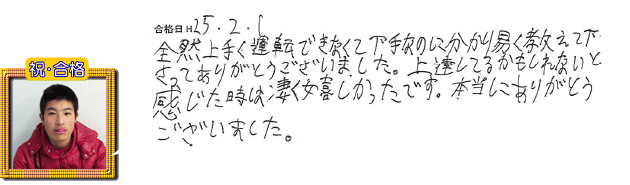 合格日 H25.2.1
祝・合格
全然上手く運転できなくて下手なのに分かり易く教えて下
さってありがとうございました。上達してるかもしれないと
感じた時は凄く嬉しかったです。本当にありがとう
ございました。